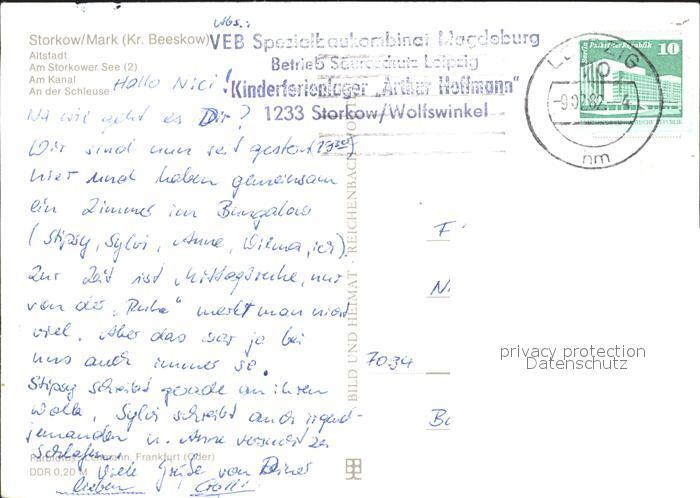 Abs.:
Storkow/Mark (Kr. Beeskow)
Altstadt
Am Storkower See (2)
Am Kanal
An der Schleuse
VEB Spezialbaukombinat Magdeburg
Betrieb Säureschutz Leipzig
Kinderferienlager „Arthur Hoffmann"
1233 Storkow/Wolfswinkel
LEIPZIG
-9.02.82.-4
nm
10
Berlin Palast der Republik
Hallo Nici!
Na wie geht es Dir?
Wir sind nun seit gestern
hier und haben gemeinsam
ein Zimmer im Bungalow
(Stipsy, Sylvi, Anne, Wilma, ich).
Zur Zeit ist Mittagsruhe, nur
von der „Ruhe" merkt man nicht
viel. Aber das war ja bei
uns auch immer so.
Stipsy schreibt gerade an ihren
Sylvi schreibt auch irgend-
jemanden u. Anne versucht zu
schlafen.
Viele Grüße von Deiner
lieben
F
N
7034
B
BILD UND HEIMAT · REICHENBACH (VOGTL)
Farbfotos: Lehmann, Frankfurt (Oder)
DDR 0,20 M
privacy protection
Datenschutz